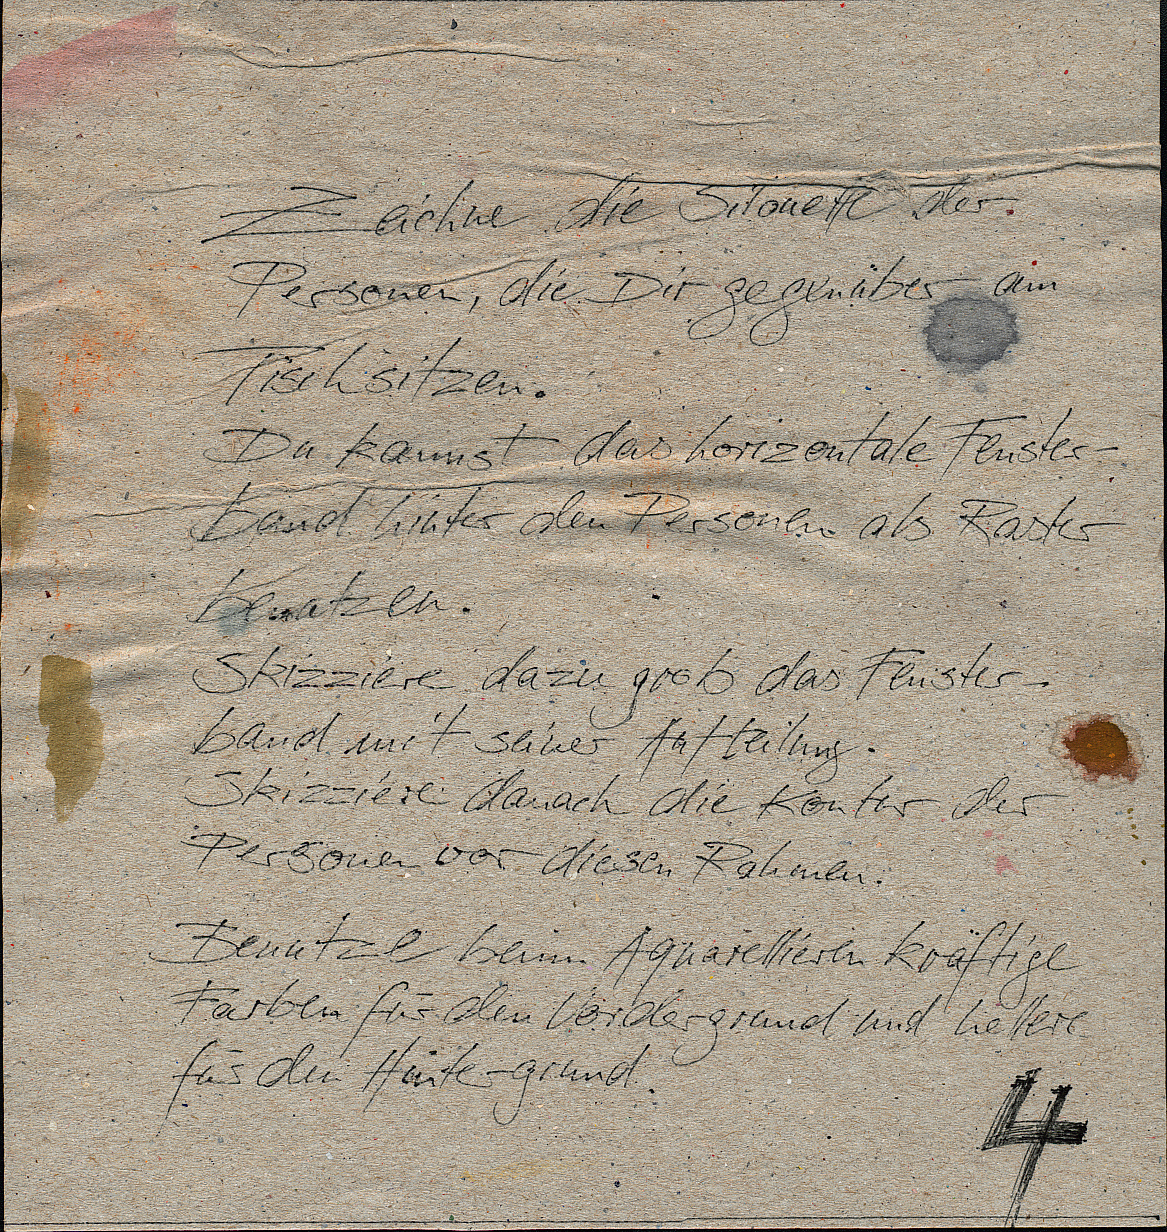 Zeichne die Silouette der
Personen, die Dir gegenüber am
Tisch sitzen.
Du kannst das horizontale Fenster-
band hinter den Personen als Raster
benutzen.
Skizziere dazu grob das Fenster-
band mit seiner Aufteilung.
Skizziere danach die Kontur der
Personen vor diesen Rahmen.
Benutze beim Aquarellieren kräftige
Farben für den Vordergrund und hellere
für den Hintergrund.
4